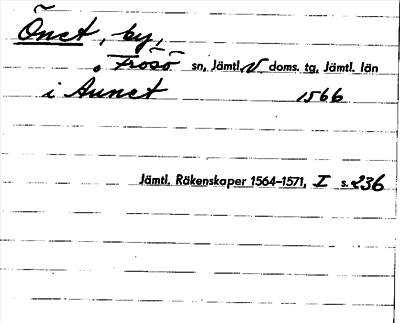 Önet, by,
Frösö sn, Jämtl. V doms. tg, Jämtl. län
i Aunet 1566
Jämtl. Räkenskaper 1564–1571, I s. 236